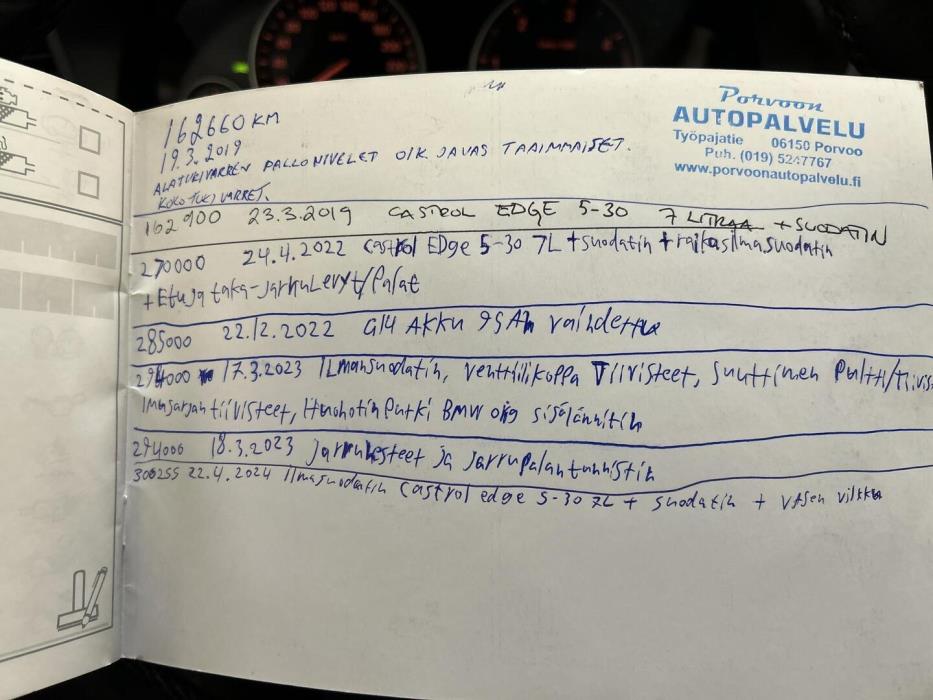 162660 KM
19.3.2019
ALATUKIVARREN PALLONIVELET OIK JA VAS TAAIMMAISET.
KOKO TUKIVARRET.
Porvoon
AUTOPALVELU
Työpajatie 06150 Porvoo
Puh. (019) 5247767
www.porvoonautopalvelu.fi
162900 23.3.2019 CASTROL EDGE 5-30 7 LITRAA + SUODATIN
270000 24.4.2022 Castrol EDge 5-30 7L + suodatin + raikasilmasuodatin
+ Etu ja taka-jarruLevyt/Palat
285000 22.12.2022 AKKU 95Ah vaihdettu
294000 17.3.2023 ILmansuodatin, venttiilikoppa Tiivisteet, suuttimen Pultti/Tiivis
Imusarjan tiivisteet, Huohotin Putki BMW orig
294000 18.3.2023 Jarrunesteet ja Jarrupalantunnistin
300255 22.4.2024 Ilmasuodatin Castrol edge 5-30 7L + suodatin + vasen vilkku